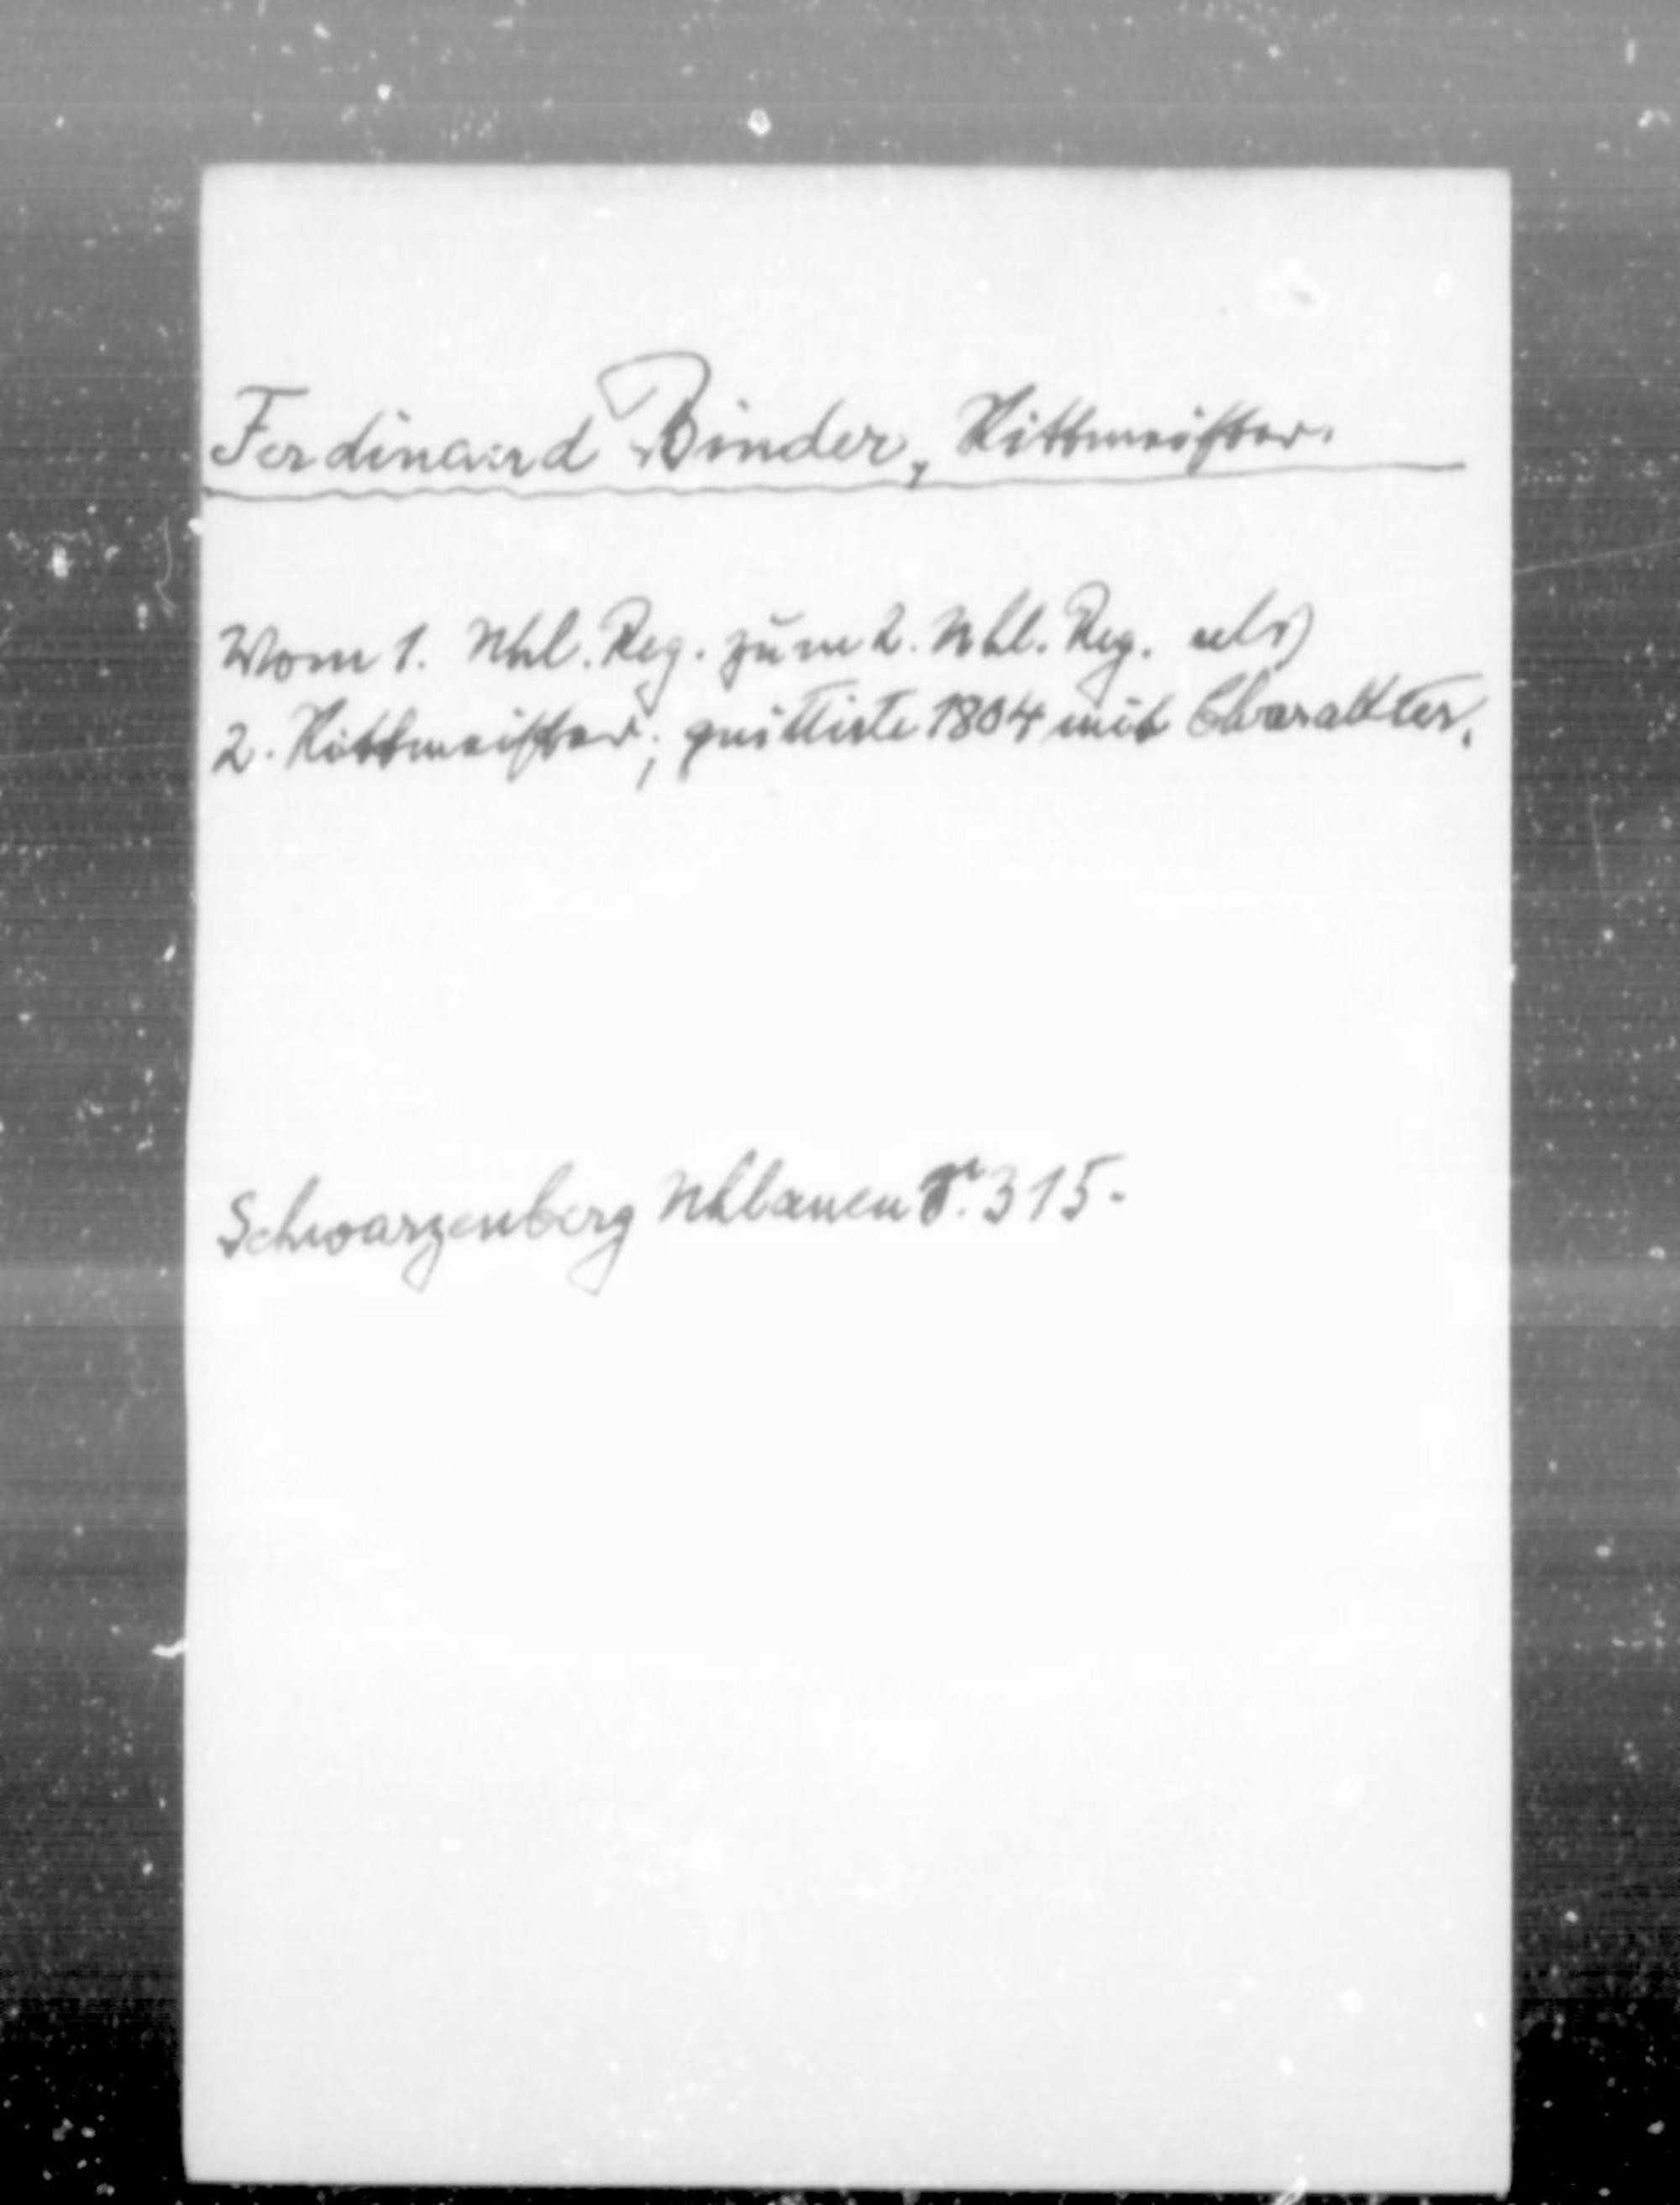 Ferdinand Binder, Rittmeister.
Vom 1. Uhl. Reg. zum 2. Uhl. Reg. als
2. Rittmeister; quittirte 1804 mit Charakter.
Schwarzenberg Uhlanen 315.